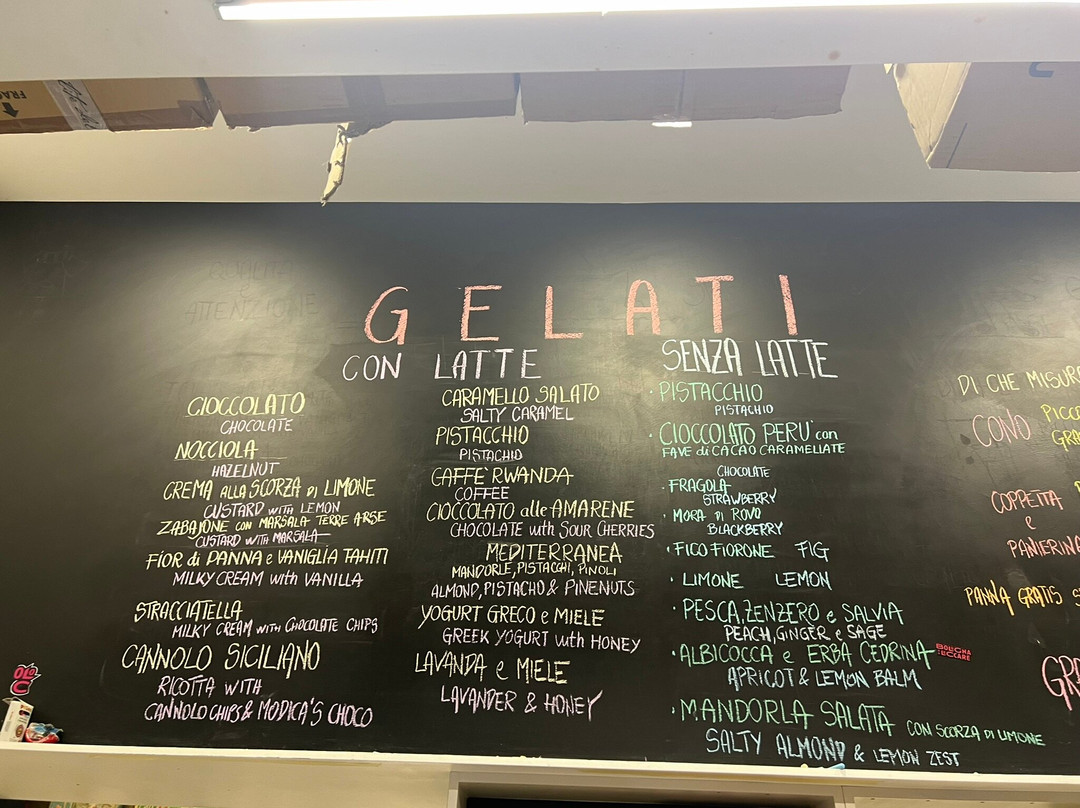 FRAG
QUALITÀ
ATTENZIONE
GELATI
CON LATTE
CIOCCOLATO
CHOCOLATE
NOCCIOLA
HAZELNUT
CREMA ALLA SCORZA DI LIMONE
CUSTARD WITH LEMON
ZABAJONE CON MARSALA TERRE ARSE
CUSTARD WITH MARSALA
FIOR di PANNA e VANIGLIA TAHITI
MILKY CREAM with VANILLA
STRACCIATELLA
MILKY CREAM WITH CHOCOLATE CHIPS
CANNOLO SICILIANO
RICOTTA WITH
CANNOLO CHIPS & MODICA'S CHOCO
CARAMELLO SALATO
SALTY CARAMEL
PISTACCHIO
PISTACHIO
CAFFÈ RWANDA
COFFEE
CIOCCOLATO alle AMARENE
CHOCOLATE with SOUR CHERRIES
MEDITERRANEA
MANDORLE, PISTACCHI, PINOLI
ALMOND, PISTACHO & PINENUTS
YOGURT GRECO e MIELE
GREEK YOGURT with HONEY
LAVANDA e MIELE
LAVANDER & HONEY
SENZA LATTE
• PISTACCHIO
PISTACHIO
• CIOCCOLATO PERU' con
FAVE di CACAO CARAMELLATE
CHOCOLATE
• FRAGOLA
STRAWBERRY
• MORA DI ROVO
BLACKBERRY
• FICO FIORONE FIG
• LIMONE LEMON
• PESCA, ZENZERO e SALVIA
PEACH, GINGER e SAGE
• ALBICOCCA e ERBA CEDRINA
APRICOT & LEMON BALM
• MANDORLA SALATA CON SCORZA DI LIMONE
SALTY ALMOND & LEMON ZEST
DI CHE MISURA
CONO
PICCO
GRA
COPPETTA
e
PANIERINA
PANNA GRATIS S
GR